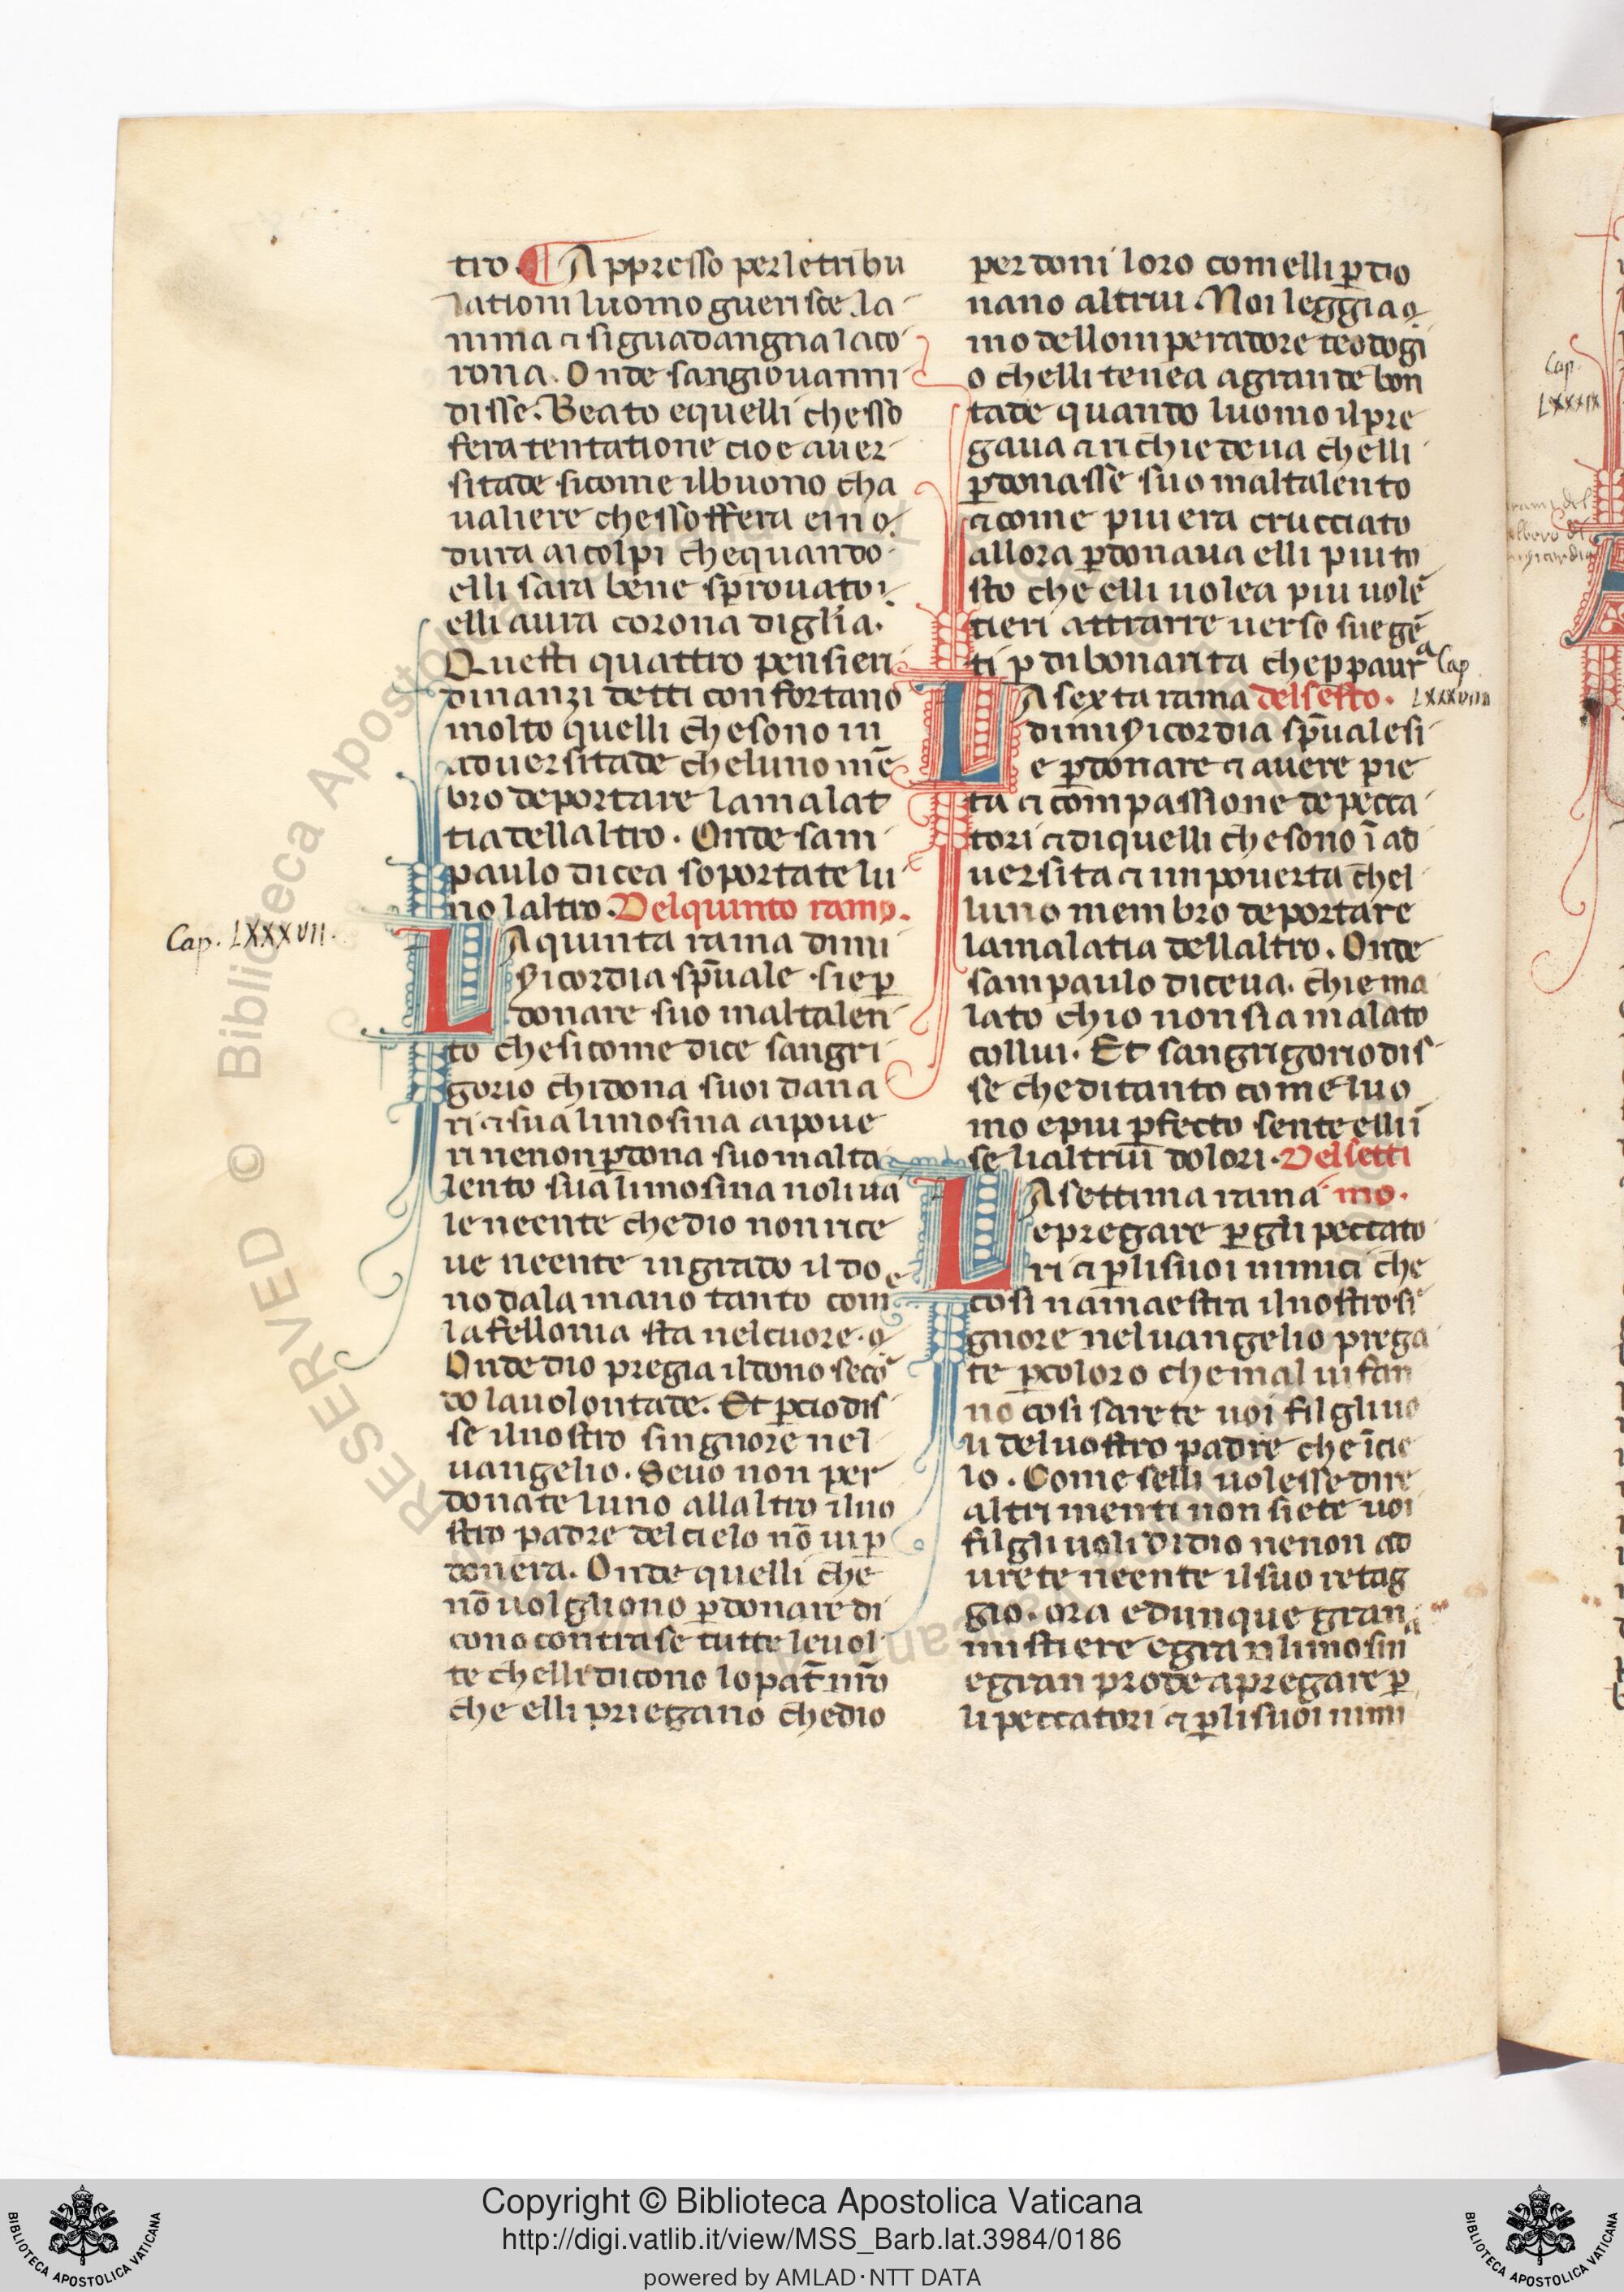 tro. ¶ Appresso perletribu
lationi luomo guerisce la
nima ⁊ siguadangna laco
rona. Onde sangiouanni
disse. Beato equelli chesso
fera tentatione cioe auer
sitade sicome ilbuono cha
ualiere chessofferra
dura aicolpi chequando
elli sara bene sprouato.
elli aura corona diglia.
Questi quattro pensieri
dinanzi detti confortano
molto quelli chesono in
aduersitade cheluno mē
bro deportare lamalat
tia dellaltro. Onde sam
paulo dicea soportate lu
no laltro. Del quinto ramo.
Cap. LXXXVII.
LA quinta rama dimi
sicordia sp̄uale sie p̱
donare suo maltalen
to chesicome dice sangri
gorio chidona suoi dana
ri ⁊ sua limosina aipoue
ri nenon p̱dona suomalta
lento sua limosina noli ua
le neente che dio non rice
ue neente ingrado il do
no dala mano tanto come
lafellonia sta nelcuore.
Onde dio pregia ildono secō
do lauolontade. Et p̱cio dis
se ilnostro singnore nel
uangelio. Seuo non per
donate luno allaltro ilno
stro padre delcielo nō ui p̱
donera. Onde quelli che
nō uolgliono p̱donare di
cono contra se tutte leuol
te chelli dicono lo pat̄ nr̄o
che elli priegano chedio
perdoni loro comelli p̱do
nano altrui. Noi leggia
mo delloimperadore teodogi
o chelli tenea agrande bon
tade quando luomo ilpre
gaua ⁊ richiedeua chelli
p̱donasse suo maltalento
⁊ come piu era crucciato
allora p̱donaua elli piu to
sto che elli uolea piu uolē
tieri attrarre uerso sue gē
ti p̱ dibonarita cheppaura
Cap
LXXXVIII
LA sexta rama del sesto.
dimisicordia sp̄uale si
e p̱donare ⁊ auere pie
ta ⁊ compassione depecca
tori ⁊ diquelli chesono ī ad
uersita ⁊ impouerta chel
luno membro deportare
lamalatia dellaltro. Onde
sampaulo diceua. chie ma
lato chio non sia malato
collui. Et sangrigorio dis
se cheditanto come luo
mo epiu p̱fecto sente elli ī
se li altrui dolori. Del setti
LA settima rama mo.
e pregare p̱ gli peccato
ri ⁊ p̱ li suoi nimici che
cosi namaestra ilnostro si
gnore neluangelio prega
te p̱ coloro chemal ui fan
no cosi sarete uoi filgliuo
li deluostro padre che ī cie
lo. Come selli uolesse dire
altrimenti non siete uoi
filgliuoli didio nenon ad
urete neente ilsuo retag
gio. ora edunque gran
mistiere e gran limosina
e gran prode apregare p̱
li peccatori ⁊ p̱ li suoi nimi
Cap.
LXXXIX
RESERVED © Biblioteca Apostolica Vaticana
Copyright © Biblioteca Apostolica Vaticana
http://digi.vatlib.it/view/MSS_Barb.lat.3984/0186
powered by AMLAD·NTT DATA
BIBLIOTECA APOSTOLICA VATICANA
BIBLIOTECA APOSTOLICA VATICANA